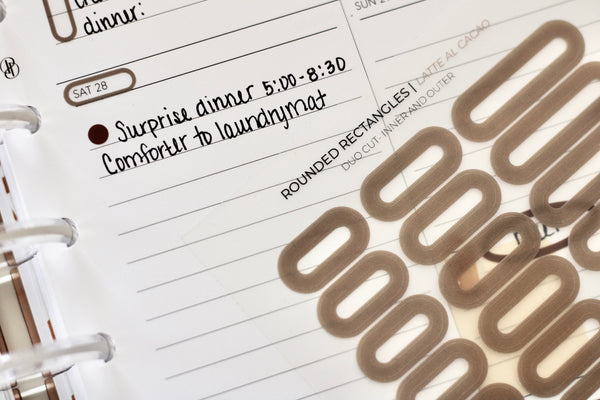 dinner:
SUN 2
SAT 28
Surprise dinner 5:00-8:30
Comforter to laundrymat
ROUNDED RECTANGLES | LATTE AL CACAO
DUO CUT- INNER AND OUTER